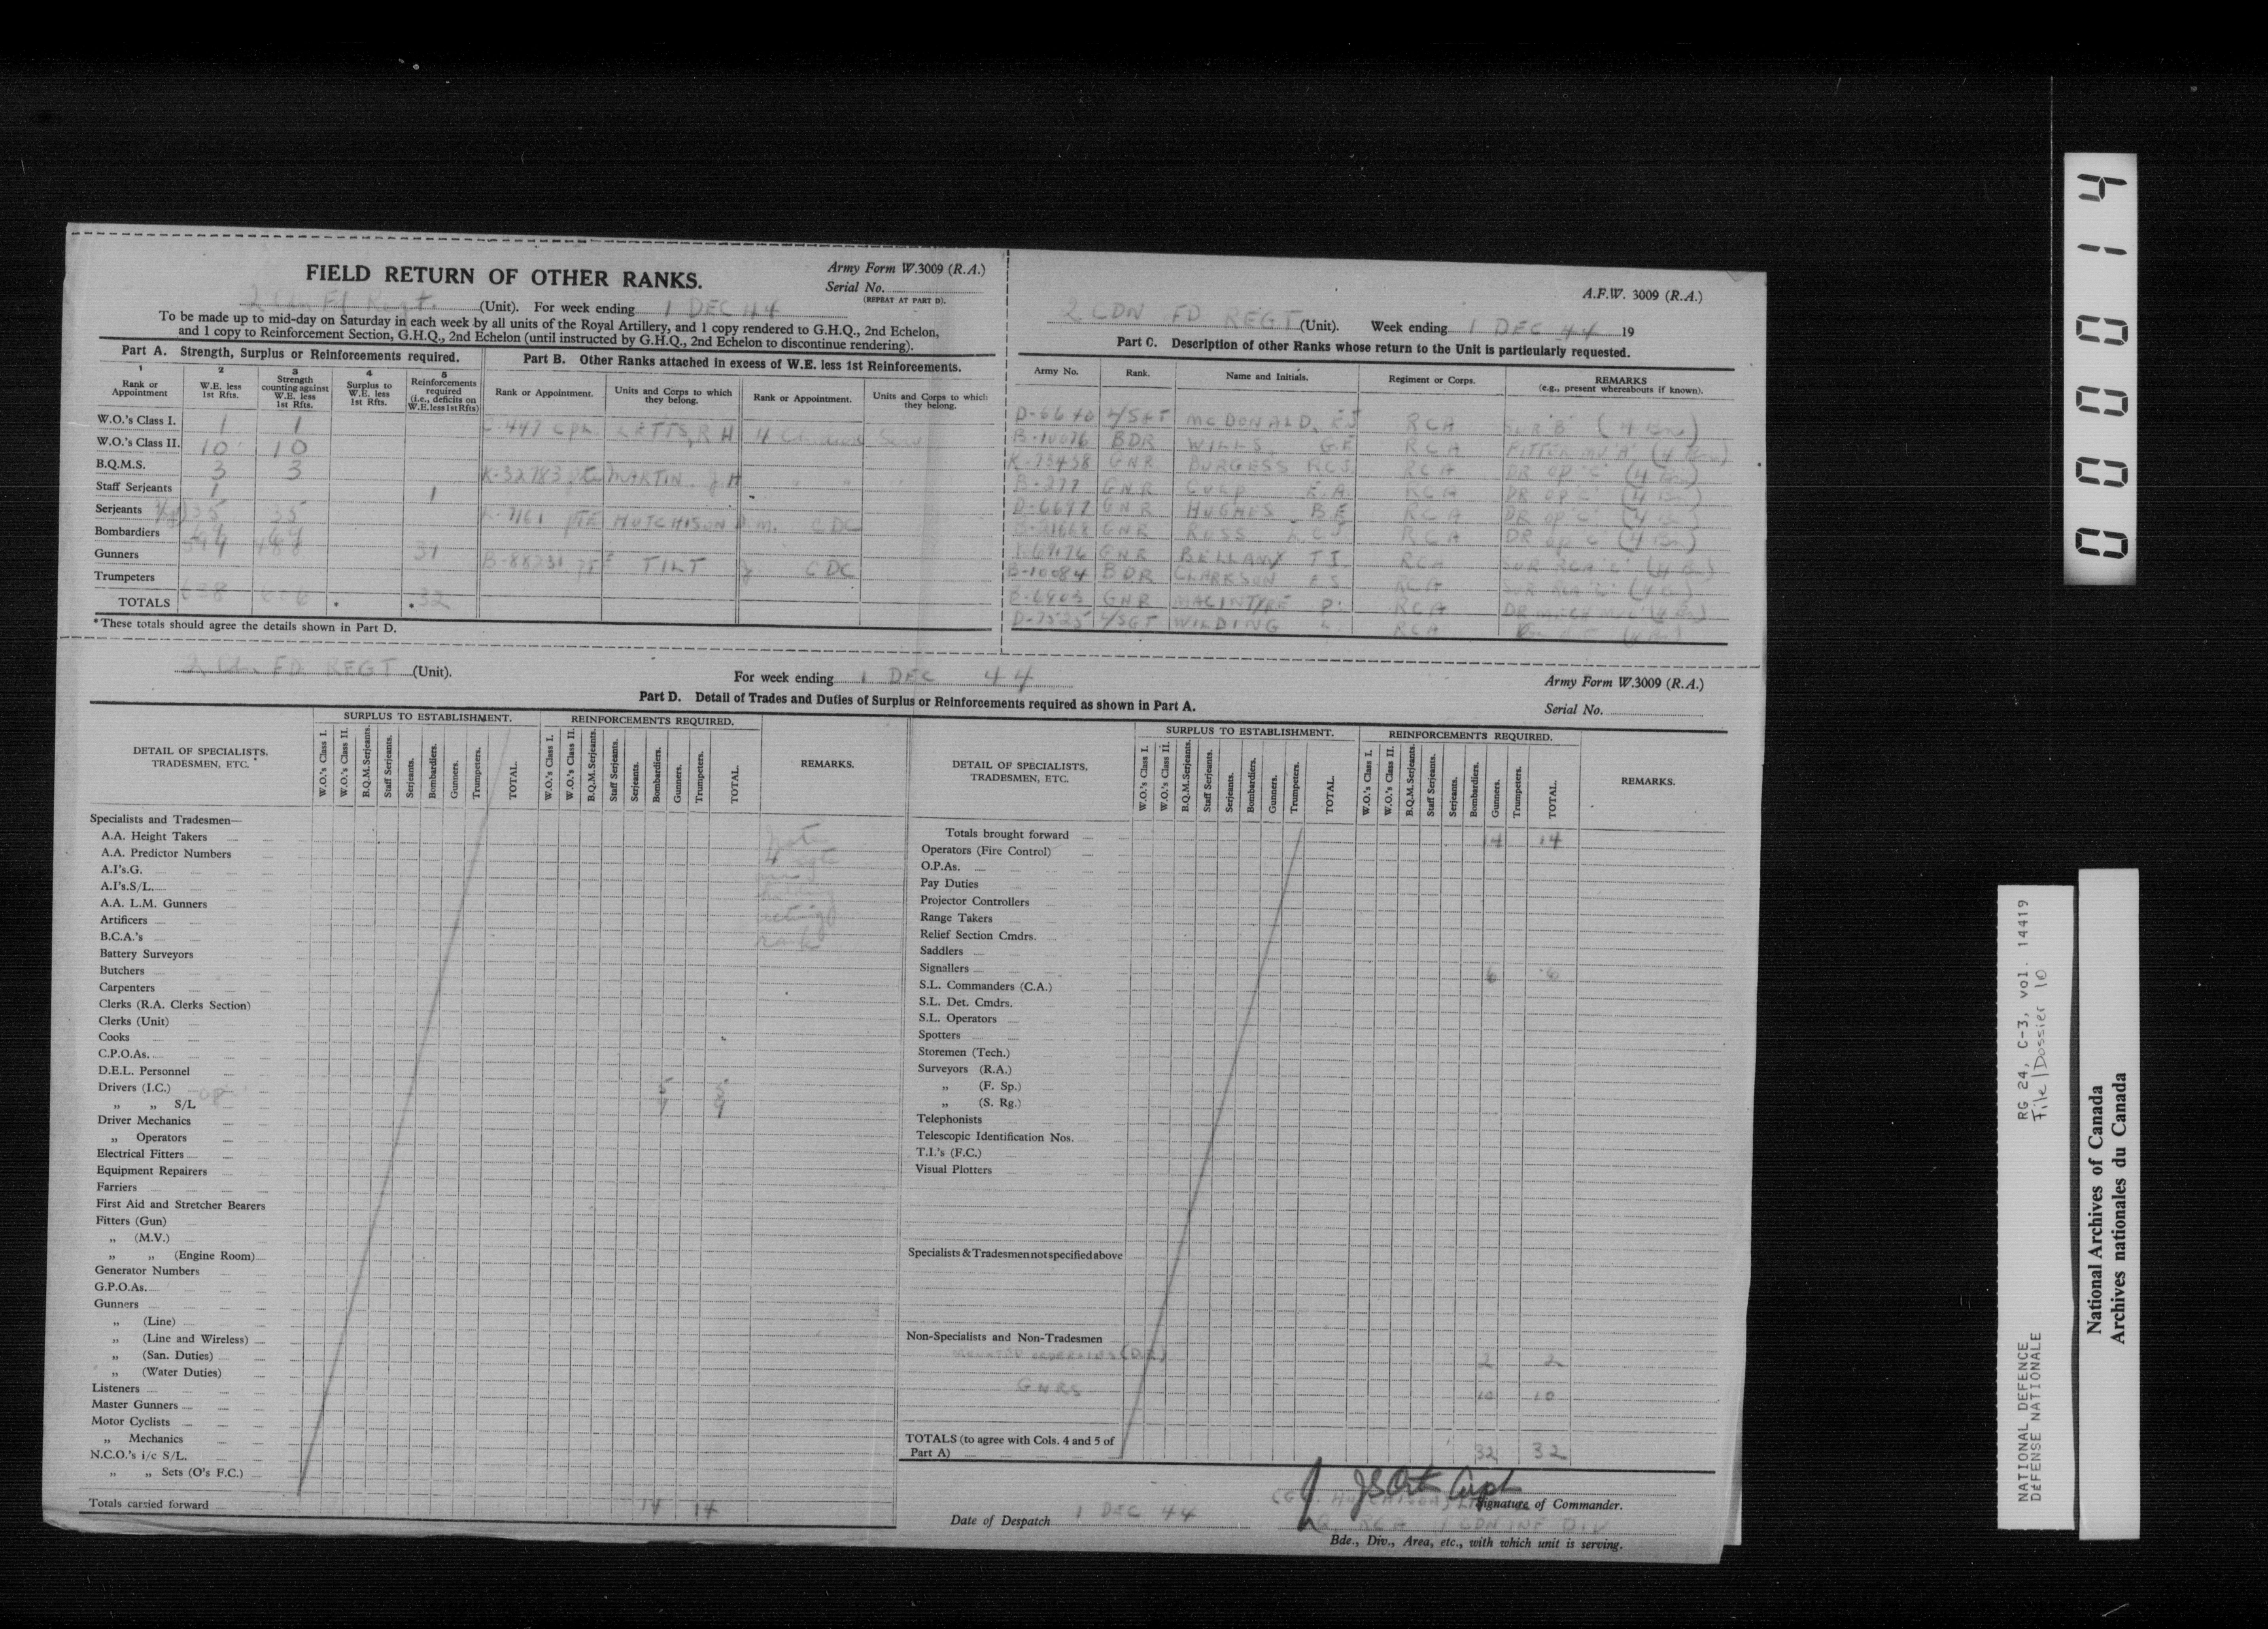 FIELD RETURN OF OTHER RANKS.
Army Form W.3009 (R.A.)
Serial No.
(REPEAT AT PART D).
2 Regt. (Unit). For week ending 1 DEC 44
To be made up to mid-day on Saturday in each week by all units of the Royal Artillery, and 1 copy rendered to G.H.Q., 2nd Echelon,
and 1 copy to Reinforcement Section, G.H.Q., 2nd Echelon (until instructed by G.H.Q., 2nd Echelon to discontinue rendering).
Part A. Strength, Surplus or Reinforcements required.
1 2 3 4 5
Rank or Appointment
W.E. less 1st Rfts.
Strength counting against W.E. less 1st Rfts.
Surplus to W.E. less 1st Rfts.
Reinforcements required (i.e., deficits on W.E. less 1st Rfts)
W.O.'s Class I. 1 1
W.O.'s Class II. 10 10
B.Q.M.S. 3 3
Staff Serjeants 1 1
Serjeants 35 35
Bombardiers
Gunners 31
Trumpeters
TOTALS 638 606 32
*These totals should agree the details shown in Part D.
Part B. Other Ranks attached in excess of W.E. less 1st Reinforcements.
Rank or Appointment.
Units and Corps to which they belong.
Rank or Appointment.
Units and Corps to which they belong.
447 Cpl LETTS, R H 4
K-32783 MARTIN J H
K-7161 PTE HUTCHISON D.M. CDC
B-88231 TILT J CDC
A.F.W. 3009 (R.A.)
2 CDN FD REGT (Unit). Week ending 1 DEC 44 19
Part C. Description of other Ranks whose return to the Unit is particularly requested.
Army No. Rank. Name and Initials. Regiment or Corps. REMARKS
(e.g., present whereabouts if known).
D-6640 L/SGT MCDONALD, EJ RCA SUR 'B'
B-10076 BDR WILLS, G.E RCA FITTER MV 'A'
K-73458 GNR BURGESS RCS. RCA DR OP 'C'
B-277 GNR CULP E.A. RCA DR OP 'C'
D-6697 GNR HUGHES B.E RCA DR OP 'C'
GNR ROSS RCA DR OP 'C'
GNR BELLAMY T I. RCA SUR RCA
B-10084 BDR CLARKSON E.S RCA SUR RCA
GNR MACINTYRE D. RCA
D-7525 L/SGT WILDING RCA
2 Cdn FD REGT (Unit).
For week ending 1 DEC 44
Army Form W.3009 (R.A.)
Serial No.
Part D. Detail of Trades and Duties of Surplus or Reinforcements required as shown in Part A.
DETAIL OF SPECIALISTS, TRADESMEN, ETC.
SURPLUS TO ESTABLISHMENT.
W.O.'s Class I.
W.O.'s Class II.
B.Q.M.Serjeants.
Staff Serjeants.
Serjeants.
Bombardiers.
Gunners.
Trumpeters.
TOTAL.
REINFORCEMENTS REQUIRED.
W.O.'s Class I.
W.O.'s Class II.
B.Q.M.Serjeants.
Staff Serjeants.
Serjeants.
Bombardiers.
Gunners.
Trumpeters.
TOTAL.
REMARKS.
Specialists and Tradesmen—
A.A. Height Takers
A.A. Predictor Numbers
A.I's.G.
A.I's.S/L.
A.A. L.M. Gunners
Artificers
B.C.A.'s
Note
holding
acting
rank
Battery Surveyors
Butchers
Carpenters
Clerks (R.A. Clerks Section)
Clerks (Unit)
Cooks
C.P.O.As.
D.E.L. Personnel
Drivers (I.C.) 5 5
„ „ S/L OP 9 9
Driver Mechanics
„ Operators
Electrical Fitters
Equipment Repairers
Farriers
First Aid and Stretcher Bearers
Fitters (Gun)
„ (M.V.)
„ „ (Engine Room)
Generator Numbers
G.P.O.As.
Gunners
„ (Line)
„ (Line and Wireless)
„ (San. Duties)
„ (Water Duties)
Listeners
Master Gunners
Motor Cyclists
„ Mechanics
N.C.O.'s i/c S/L.
„ „ Sets (O's F.C.)
Totals carried forward 14 14
DETAIL OF SPECIALISTS, TRADESMEN, ETC.
SURPLUS TO ESTABLISHMENT.
W.O.'s Class I.
W.O.'s Class II.
B.Q.M.Serjeants.
Staff Serjeants.
Serjeants.
Bombardiers.
Gunners.
Trumpeters.
TOTAL.
REINFORCEMENTS REQUIRED.
W.O.'s Class I.
W.O.'s Class II.
B.Q.M.Serjeants.
Staff Serjeants.
Serjeants.
Bombardiers.
Gunners.
Trumpeters.
TOTAL.
REMARKS.
Totals brought forward 14 14
Operators (Fire Control)
O.P.As.
Pay Duties
Projector Controllers
Range Takers
Relief Section Cmdrs.
Saddlers
Signallers 6 6
S.L. Commanders (C.A.)
S.L. Det. Cmdrs.
S.L. Operators
Spotters
Storemen (Tech.)
Surveyors (R.A.)
„ (F. Sp.)
„ (S. Rg.)
Telephonists
Telescopic Identification Nos.
T.I.'s (F.C.)
Visual Plotters
Specialists & Tradesmen not specified above
Non-Specialists and Non-Tradesmen
MOUNTED ORDERLIES (D.R) 2 2
GNRS 10 10
TOTALS (to agree with Cols. 4 and 5 of Part A) 32 32
Capt
Signature of Commander.
Date of Despatch 1 DEC 44
RCA 1 CDN INF DIV
Bde., Div., Area, etc., with which unit is serving.
000014
NATIONAL DEFENCE RG 24, C-3, vol. 14419
DÉFENSE NATIONALE File/Dossier 10
National Archives of Canada
Archives nationales du Canada